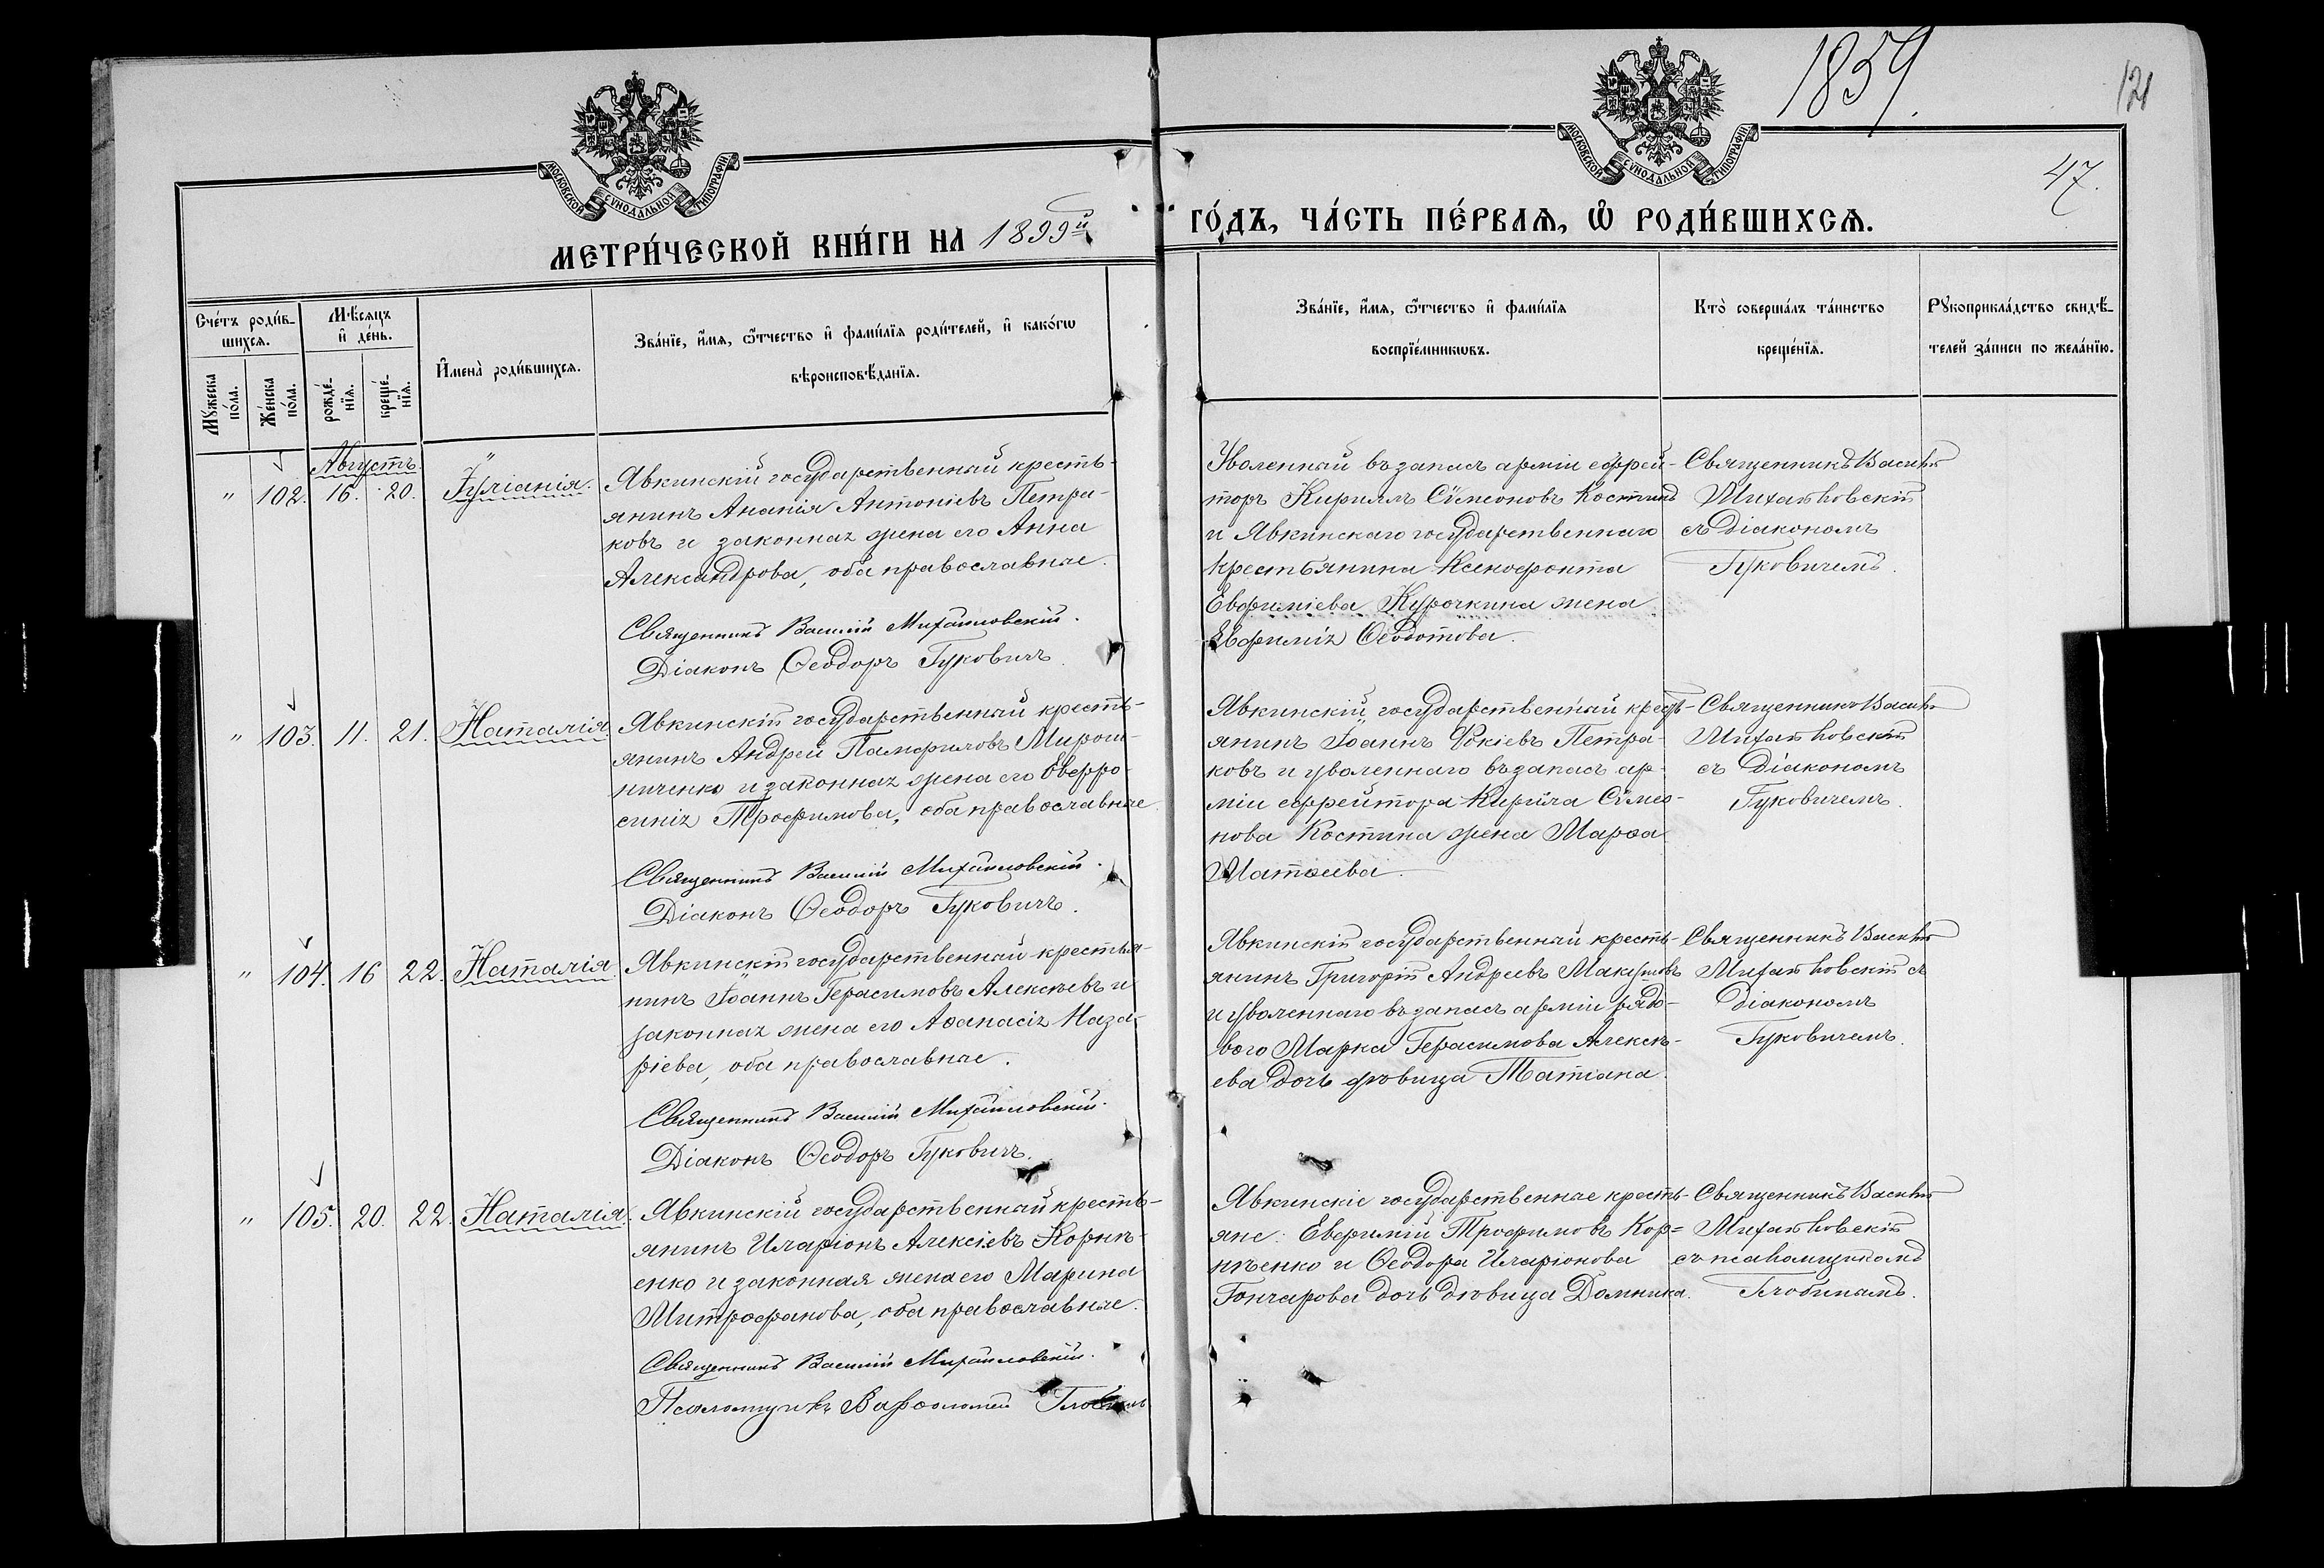 1859.
121
47.
МОСКОВСКОЙ СѴНОДАЛЬНОЙ ТИПОГРАФІИ
МОСКОВСКОЙ СѴНОДАЛЬНОЙ ТИПОГРАФІИ
МЕТРИ́ЧЕСКОЙ КНИ́ГИ НА 1899й
ГО́ДЪ, ЧА́СТЬ ПЕ́РВАѦ, Ѽ РОДИ́ВШИХСѦ.
Сче́тъ роди́в-
шихсѧ.
Мꙋжеска по́ла.
Же́нска по́ла.
Мѣ́сѧцъ
и҆ де́нь.
рожде́-
нїѧ.
креще́-
нїѧ.
И҆мена̀ роди́вшихсѧ.
Зва́нїе, и҆́мѧ, ѻ҆́тчество и҆ фами́лїѧ роди́телей, и҆ како́гѡ
вѣроисповѣ́данїѧ.
Зва́нїе, и҆́мѧ, ѻ҆́тчество и҆ фами́лїѧ
воспрїе́мникѡвъ.
Кто̀ соверша́лъ та́инство
креще́нїѧ.
Рꙋкоприкла́дство свидѣ́-
телей за́писи по жела́нїю.
Августъ.
" 102. 16. 20. Іуліанія.
Явкинскій государственный кресть-
янинъ Ананія Антоніевъ Петра-
ковъ и законная жена его Анна
Александрова, оба православные.
Священникъ Василій Михайловскій.
Діаконъ Ѳеодоръ Гуковичъ.
Уволенный въ запасъ арміи ефрей-
торъ Кириллъ Сѵмеоновъ Костинъ
и Явкинскаго государственнаго
крестьянина Ксенофонта
Евфиміева Курочкина жена
Евфимія Ѳеодотова.
Священникъ Василій
Михайловскій
съ діакономъ
Гуковичемъ.
" 103. 11. 21. Наталія
Явкинскій государственный кресть-
янинъ Андрей Памфиловъ Мирош-
ниченко и законная жена его Евфро-
синія Трофимова, оба православные.
Священникъ Василій Михайловскій.
Діаконъ Ѳеодоръ Гуковичъ.
Явкинскій государственный кресть-
янинъ Іоаннъ Фокіевъ Петра-
ковъ и уволеннаго въ запасъ ар-
міи ефрейтора Кирила Сѵмео-
нова Костина жена Марѳа
Матѳеева.
Священникъ Василій
Михайловскій
съ діакономъ
Гуковичемъ.
" 104. 16 22. Наталія
Явкинскій государственный крестья-
нинъ Іоаннъ Герасимовъ Алексѣевъ и
законная жена его Аѳанасія Наза-
ріева, оба православные.
Священникъ Василій Михайловскій.
Діаконъ Ѳеодоръ Гуковичъ.
Явкинскій государственный кресть-
янинъ Григорій Андреевъ
и уволеннаго въ запасъ арміи рядо-
вого Марка Герасимова Алексѣ-
ева дочь дѣвица Татіана.
Священникъ Василій
Михайловскій съ
діакономъ
Гуковичемъ.
" 105. 20. 22. Наталія.
Явкинскій государственный кресть-
янинъ Иларіонъ Алексіевъ Корнѣ-
енко и законная жена его Марина
Митрофанова, оба православные.
Священникъ Василій Михайловскій.
Псаломщикъ Варѳоломей
Явкинскіе государственные кресть-
яне: Евфимій Трофимовъ Кор=
нѣенко и Ѳеодора Иларіонова
Гончарова дочь дѣвица Домника.
Священникъ Василій
Михайловскій
съ псаломщикомъ
Глобинымъ.